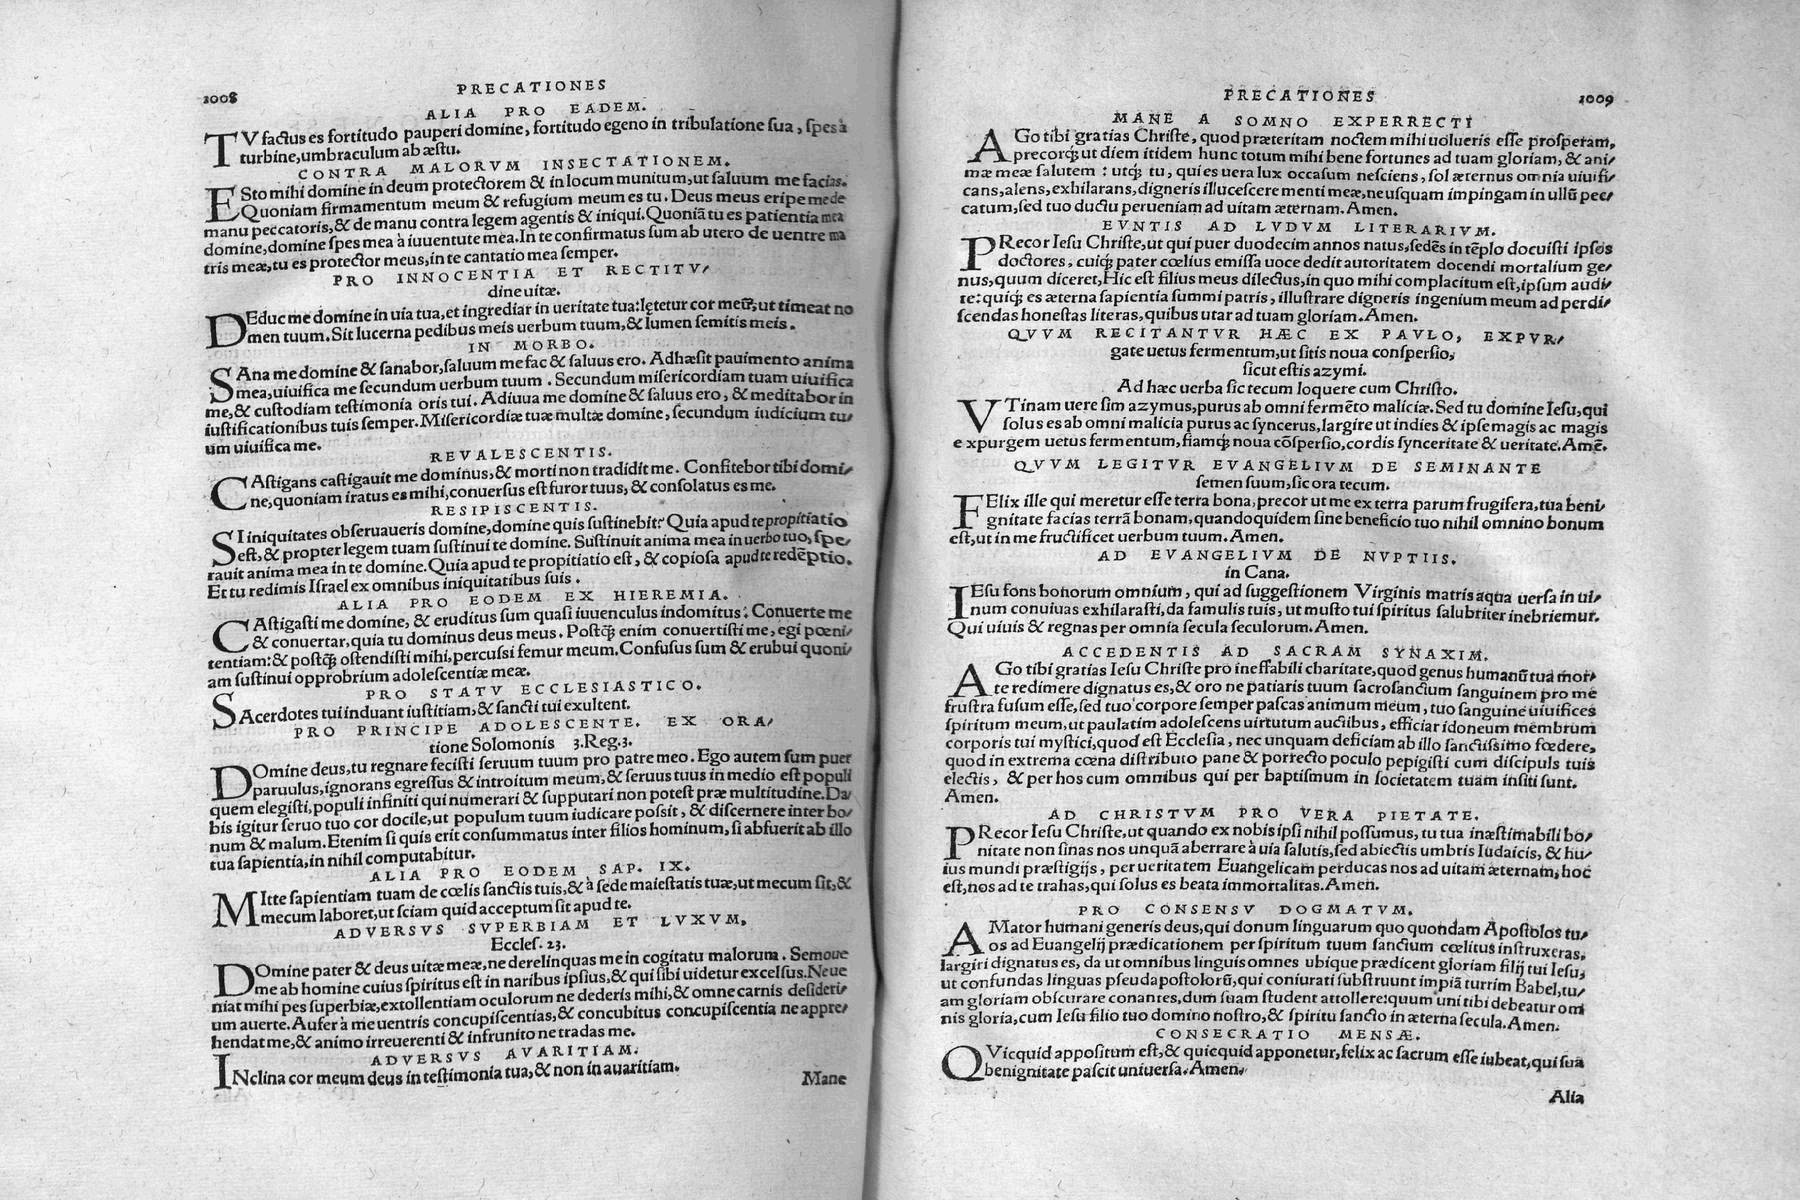 1008
PRECATIONES
ALIA PRO EADEM.
TV factus es fortitudo pauperi domine, fortitudo egeno in tribulatione sua, spes à
turbine, umbraculum ab æstu.
CONTRA MALORVM INSECTATIONEM.
ESto mihi domine in deum protectorem & in locum munitum, ut saluum me facias.
Quoniam firmamentum meum & refugium meum es tu. Deus meus eripe me de
manu peccatoris, & de manu contra legem agentis & iniqui. Quoniã tu es patientia mea
domine, domine spes mea à iuuentute mea. In te confirmatus sum ab utero de uentre ma
tris meæ, tu es protector meus, in te cantatio mea semper.
PRO INNOCENTIA ET RECTITV/
dine uitæ.
DEduc me domine in uia tua, et ingrediar in ueritate tua: lętetur cor meũ, ut timeat no
men tuum. Sit lucerna pedibus meis uerbum tuum, & lumen semitis meis.
IN MORBO.
SAna me domine & sanabor, saluum me fac & saluus ero. Adhæsit pauimento anima
mea, uiuifica me secundum uerbum tuum. Secundum misericordiam tuam uiuifica
me, & custodiam testimonia oris tui. Adiuua me domine & saluus ero, & meditabor in
iustificationibus tuis semper. Misericordiæ tuæ multæ domine, secundum iudicium tu/
um uiuifica me.
REVALESCENTIS.
CAstigans castigauit me dominus, & morti non tradidit me. Confitebor tibi domi/
ne, quoniam iratus es mihi, conuersus est furor tuus, & consolatus es me.
RESIPISCENTIS.
SI iniquitates obseruaueris domine, domine quis sustinebit? Quia apud te propitiatio
est, & propter legem tuam sustinui te domine. Sustinuit anima mea in uerbo tuo, spe/
rauit anima mea in te domine. Quia apud te propitiatio est, & copiosa apud te redẽptio.
Et tu redimis Israel ex omnibus iniquitatibus suis.
ALIA PRO EODEM EX HIEREMIA.
CAstigasti me domine, & eruditus sum quasi iuuenculus indomitus: Conuerte me
& conuertar, quia tu dominus deus meus. Postq̃ enim conuertisti me, egi pœni/
tentiam: & postq̃ ostendisti mihi, percussi femur meum. Confusus sum & erubui quoni/
am sustinui opprobrium adolescentiæ meæ.
PRO STATV ECCLESIASTICO.
SAcerdotes tui induant iustitiam, & sancti tui exultent.
PRO PRINCIPE ADOLESCENTE. EX ORA/
tione Solomonis 3.Reg.3.
DOmine deus, tu regnare fecisti seruum tuum pro patre meo. Ego autem sum puer
paruulus, ignorans egressus & introitum meum, & seruus tuus in medio est populi
quem elegisti, populi infiniti qui numerari & supputari non potest præ multitudine. Da/
bis igitur seruo tuo cor docile, ut populum tuum iudicare possit, & discernere inter bo/
num & malum. Etenim si quis erit consummatus inter filios hominum, si abfuerit ab illo
tua sapientia, in nihil computabitur.
ALIA PRO EODEM SAP. IX.
MItte sapientiam tuam de cœlis sanctis tuis, & à sede maiestatis tuæ, ut mecum sit, &
mecum laboret, ut sciam quid acceptum sit apud te.
ADVERSVS SVPERBIAM ET LVXVM,
Eccles. 23.
DOmine pater & deus uitæ meæ, ne derelinquas me in cogitatu malorum. Semoue
me ab homine cuius spiritus est in naribus ipsius, & qui sibi uidetur excelsus. Neue
niat mihi pes superbiæ, extollentiam oculorum ne dederis mihi, & omne carnis desideri/
um auerte. Aufer à me uentris concupiscentias, & concubitus concupiscentia ne appre/
hendat me, & animo irreuerenti & infrunito ne tradas me.
ADVERSVS AVARITIAM.
INclina cor meum deus in testimonia tua, & non in auaritiam.
Mane
PRECATIONES
1009
MANE A SOMNO EXPERRECTI
AGo tibi gratias Christe, quod præteritam noctem mihi uolueris esse prosperam,
precorq́ ut diem itidem hunc totum mihi bene fortunes ad tuam gloriam, & ani/
mæ meæ salutem: utq́ tu, qui es uera lux occasum nesciens, sol æternus omnia uiuifi/
cans, alens, exhilarans, digneris illucescere menti meæ, ne usquam impingam in ullũ pec/
catum, sed tuo ductu perueniam ad uitam æternam. Amen.
EVNTIS AD LVDVM LITERARIVM.
PRecor Iesu Christe, ut qui puer duodecim annos natus, sedẽs in tẽplo docuisti ipsos
doctores, cuiq́ pater cœlius emissa uoce dedit autoritatem docendi mortalium ge/
nus, quum diceret, Hic est filius meus dilectus, in quo mihi complacitum est, ipsum audi/
te: quiq́ es æterna sapientia summi patris, illustrare digneris ingenium meum ad perdi/
scendas honestas literas, quibus utar ad tuam gloriam. Amen.
QVVM RECITANTVR HÆC EX PAVLO, EXPVR/
gate uetus fermentum, ut sitis noua conspersio,
sicut estis azymi.
Ad hæc uerba sic tecum loquere cum Christo.
VTinam uere sim azymus, purus ab omni fermẽto maliciæ. Sed tu domine Iesu, qui
solus es ab omni malicia purus ac syncerus, largire ut indies & ipse magis ac magis
expurgem uetus fermentum, fiamq́ noua cõspersio, cordis synceritate & ueritate. Amẽ.
QVVM LEGITVR EVANGELIVM DE SEMINANTE
semen suum, sic ora tecum.
FElix ille qui meretur esse terra bona, precor ut me ex terra parum frugifera, tua beni/
gnitate facias terrã bonam, quandoquidem sine beneficio tuo nihil omnino bonum
est, ut in me fructificet uerbum tuum. Amen.
AD EVANGELIVM DE NVPTIIS.
in Cana.
IEsu fons bonorum omnium, qui ad suggestionem Virginis matris aqua uersa in ui/
num conuiuas exhilarasti, da famulis tuis, ut musto tui spiritus salubriter inebriemur.
Qui uiuis & regnas per omnia secula seculorum. Amen.
ACCEDENTIS AD SACRAM SYNAXIM.
AGo tibi gratias Iesu Christe pro ineffabili charitate, quod genus humanũ tua mor/
te redimere dignatus es, & oro ne patiaris tuum sacrosanctum sanguinem pro me
frustra fusum esse, sed tuo corpore semper pascas animum meum, tuo sanguine uiuifices
spiritum meum, ut paulatim adolescens uirtutum auctibus, efficiar idoneum membrum
corporis tui mystici, quod est Ecclesia, nec unquam deficiam ab illo sanctissimo fœdere,
quod in extrema cœna distributo pane & porrecto poculo pepigisti cum discipuls tuis
electis, & per hos cum omnibus qui per baptismum in societatem tuam insiti sunt.
Amen.
AD CHRISTVM PRO VERA PIETATE.
PRecor Iesu Christe, ut quando ex nobis ipsi nihil possumus, tu tua inæstimabili bo/
nitate non sinas nos unquã aberrare à uia salutis, sed abiectis umbris Iudaicis, & hu/
ius mundi præstigijs, per ueritatem Euangelicam perducas nos ad uitam æternam, hoc
est, nos ad te trahas, qui solus es beata immortalitas. Amen.
PRO CONSENSV DOGMATVM.
AMator humani generis deus, qui donum linguarum quo quondam Apostolos tu/
os ad Euangelij prædicationem per spiritum tuum sanctum cœlitus instruxeras,
largiri dignatus es, da ut omnibus linguis omnes ubique prædicent gloriam filij tui Iesu,
ut confundas linguas pseudapostolorũ, qui coniurati substruunt impiã turrim Babel, tu/
am gloriam obscurare conantes, dum suam student attollere: quum uni tibi debeatur om
nis gloria, cum Iesu filio tuo domino nostro, & spiritu sancto in æterna secula. Amen.
CONSECRATIO MENSÆ.
QVicquid appositum est, & quicquid apponetur, felix ac sacrum esse iubeat, qui sua
benignitate pascit uniuersa. Amen.
Alia